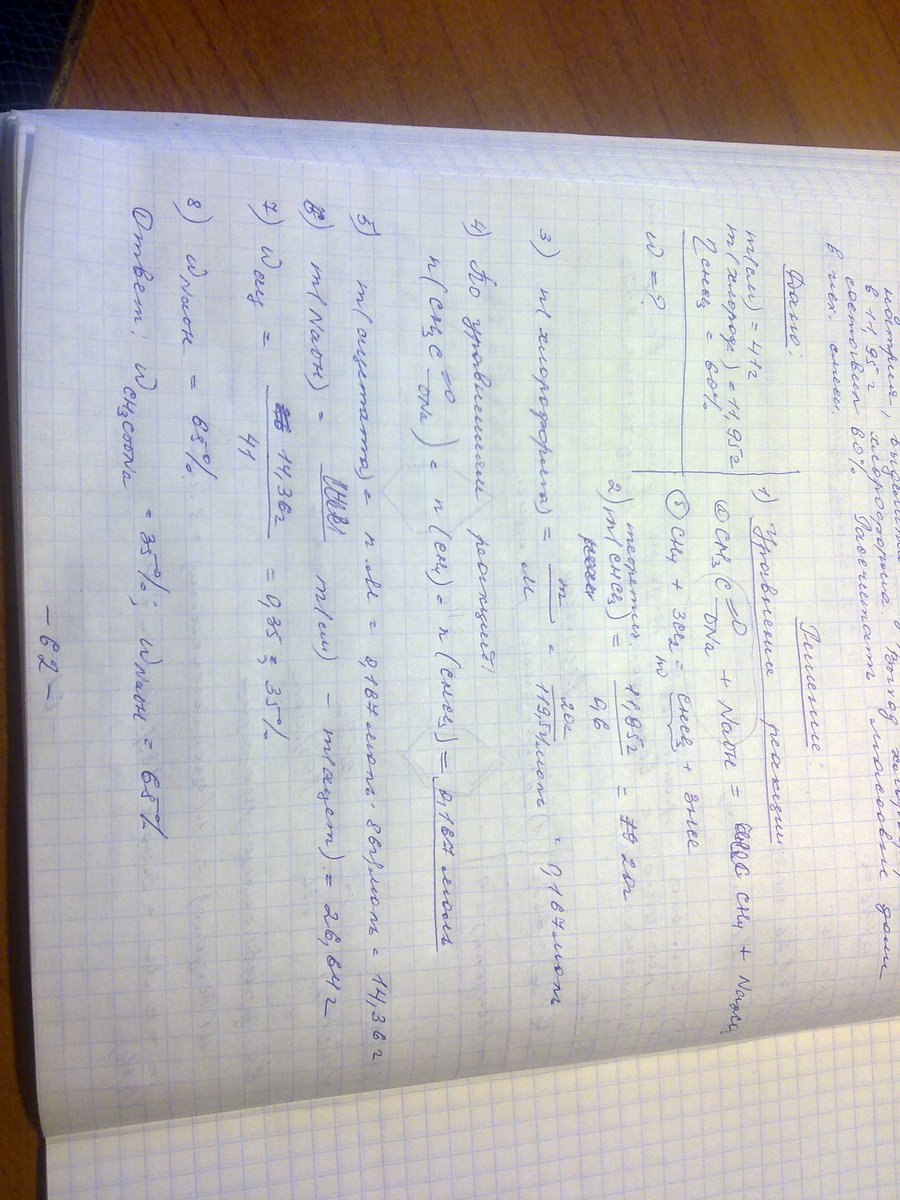 натрия, выделили
в 11,95 г хлороформа Выход хлороф
составил 60% Расчитать массовые доли
в исх. смеси.
Дано:
Решение:
m(см) = 41г
m(хлороф) = 11,95г
η CHCl3 = 60%
W = ?
1) Уравнения реакции:
а) CH3C=O–ONa + NaOH = CH4 + Na2CO3
б) CH4 + 3Cl2 = CHCl3 + 3HCl
2) m(CHCl3) теоретич = 11,95г / 0,6 = 20г
3) n(хлороформа) = m / M = 20г / 119,5г/моль = 0,167моль
4) По уравнениям реакций:
n(CH3C=O–ONa) = n(CH4) = n(CHCl3) = 0,167моль
5) m(ацетата) = n·M = 0,167моль · 86г/моль = 14,36г
6) m(NaOH) = m(см) – m(ацет) = 26,64г
7) W ац = 14,36г / 41 = 0,35 = 35%
8) W NaOH = 65%
Ответ: W CH3COONa = 35%; W NaOH = 65%
– 62 –